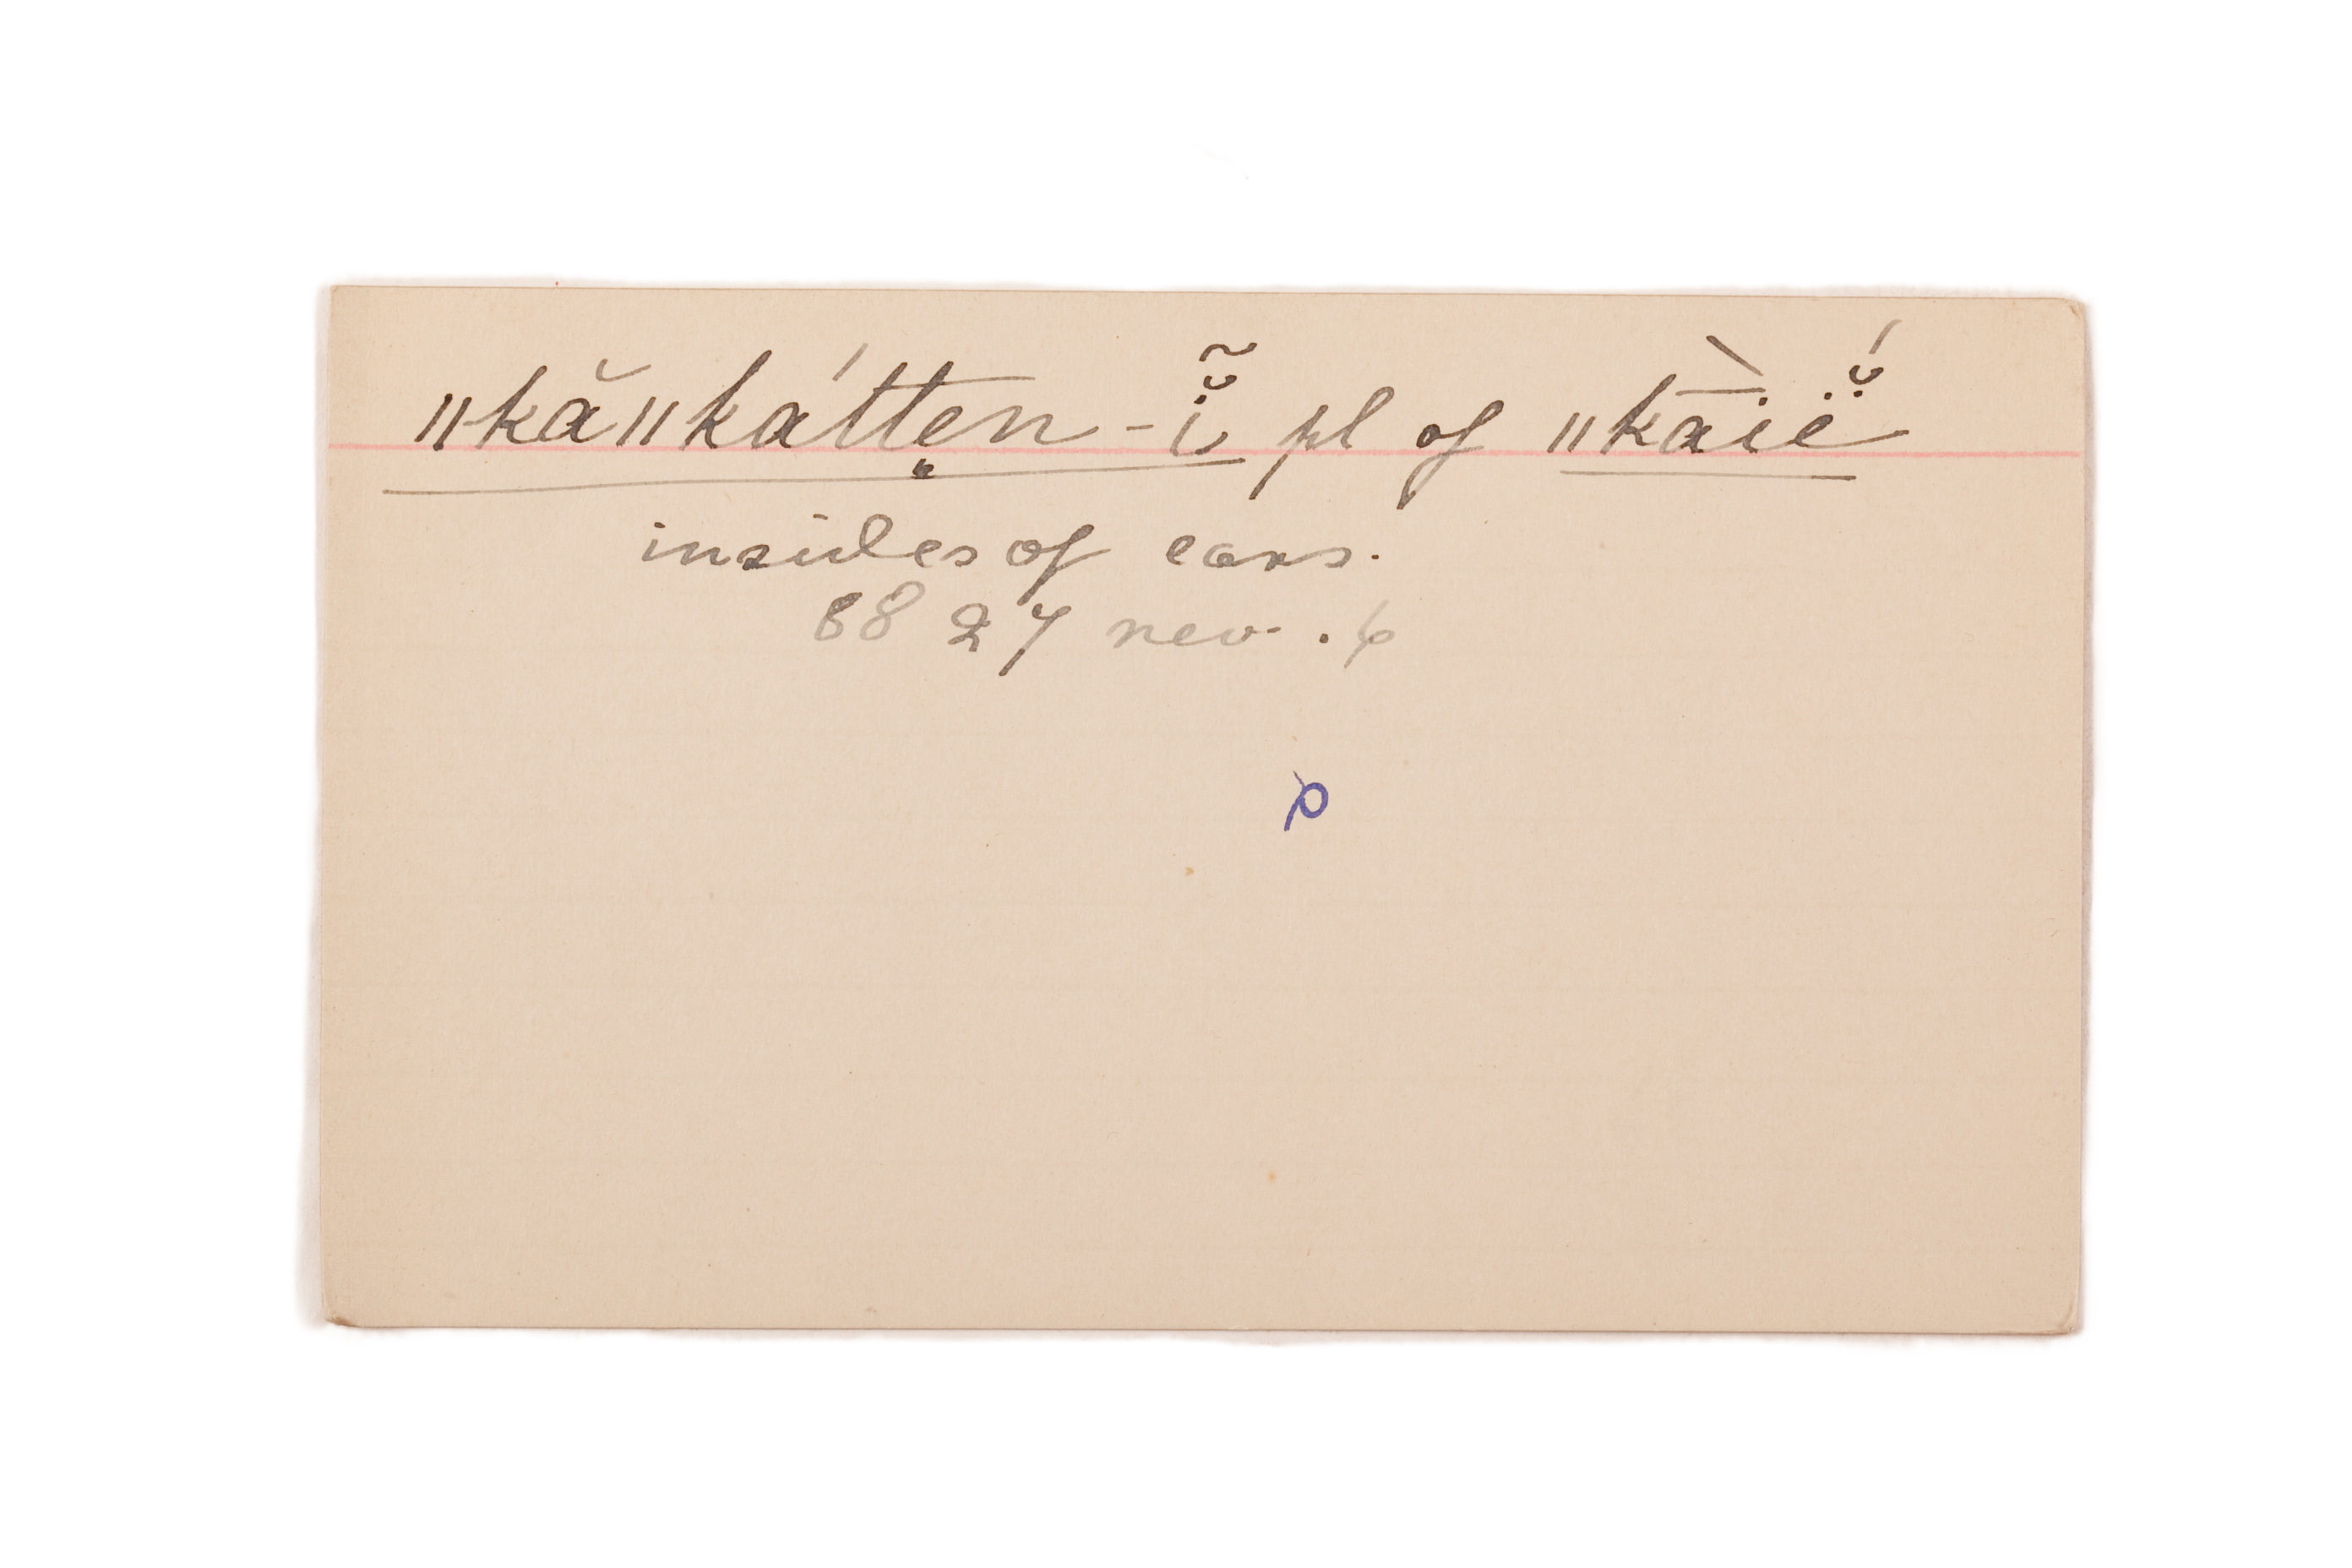 ǁkăǁkátte̤n-ĭ̃ pl of ǁkā̀ië̆́
insides of ears.
8827 rev. 6